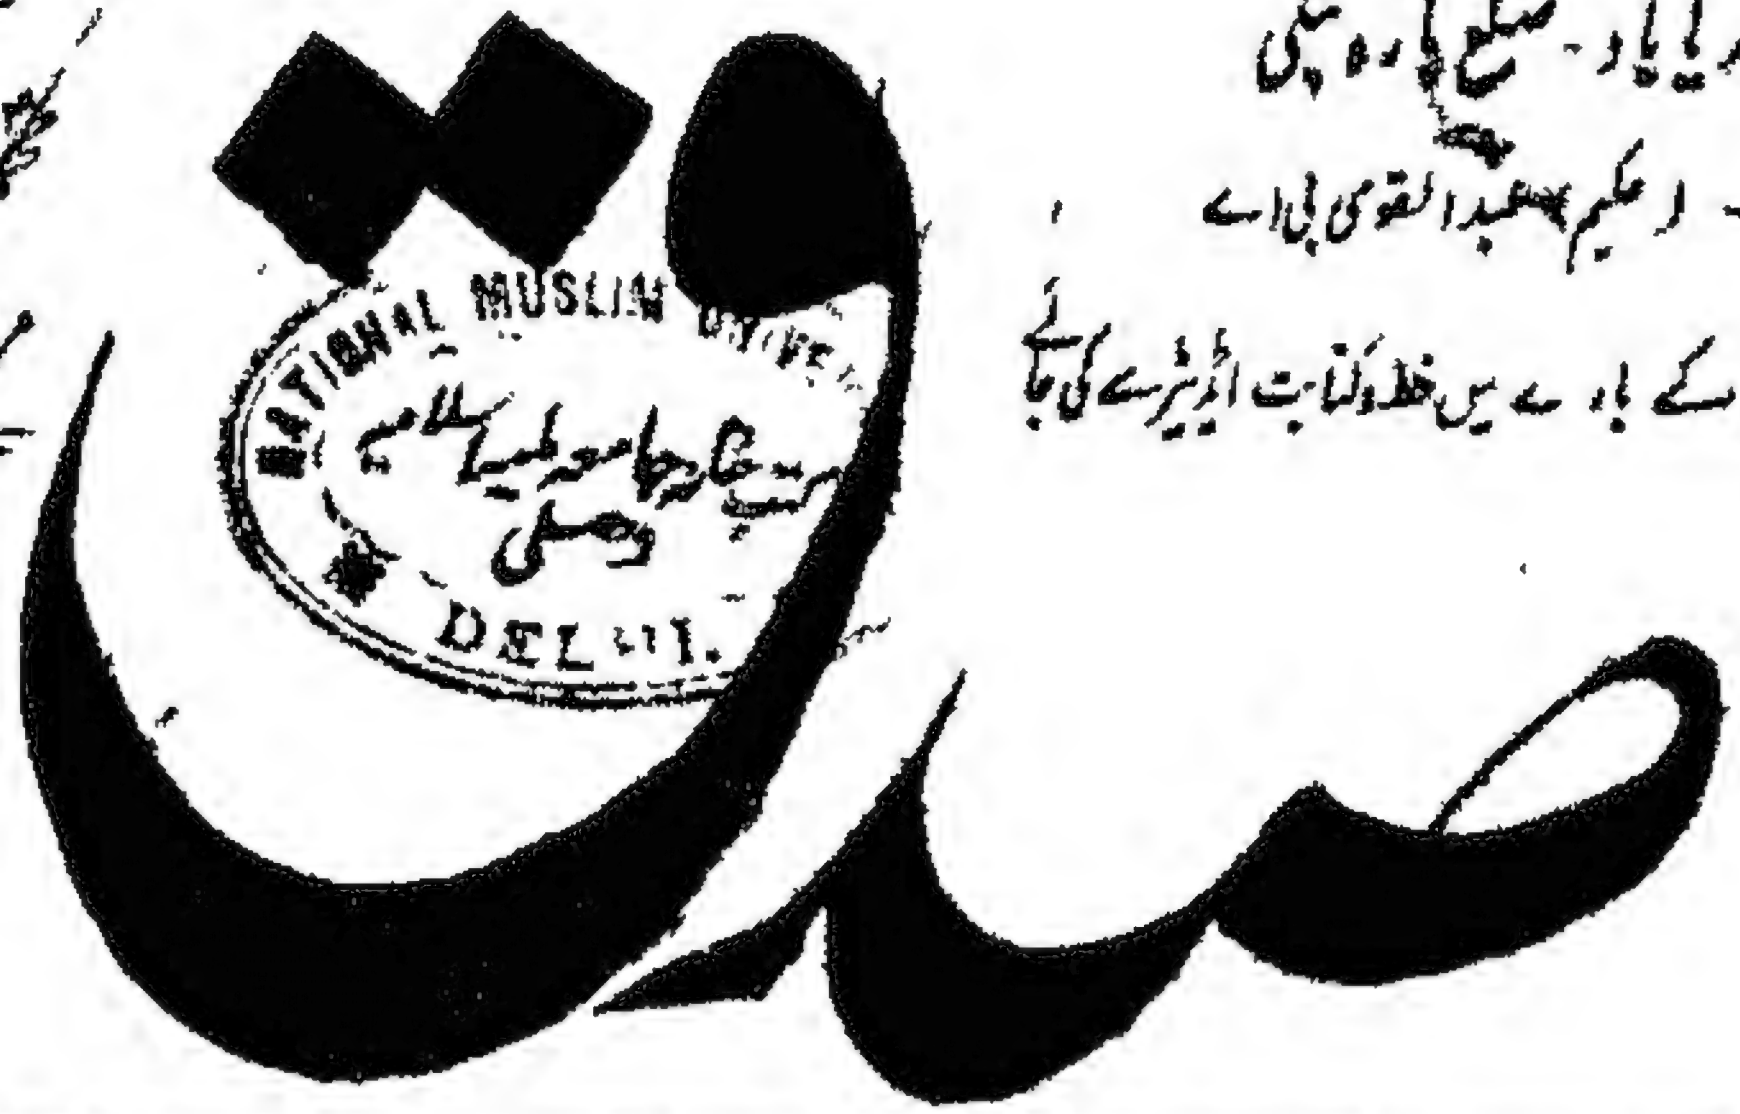 ریاباد۔ ضلع بارہ بنکی
حکیم عبدالقوی بی اے
کے بارے میں خط و کتابت اڈیٹر سے کی جائے
NATIONAL MUSLIM UNIVE
جامعہ ملیہ اسلامیہ
دہلی
DELHI.
صدق